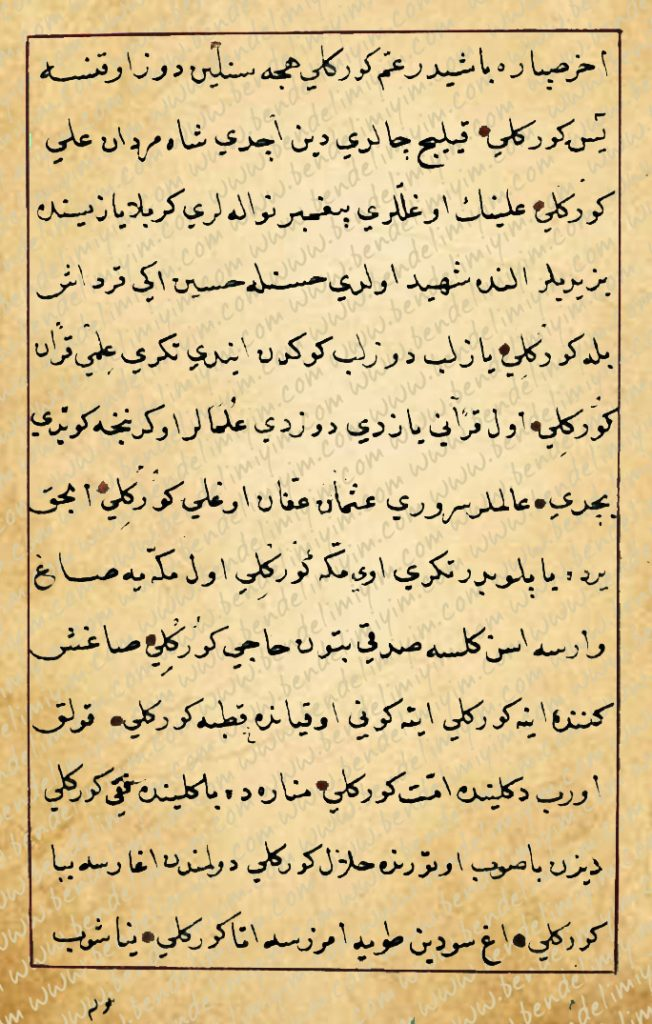 اخر صپاره باشیدر عتم کورکلي هجه سنلین دوز اوقنسه
یٓس کورکلي قیلیج چالدي دین اچدي شاه مردان علي
کورکلي علینك اوغللري پیغمبر نواله لري کربلا یازیسنده
یزیدیلر النده شهید اولدي حسنله حسین اکي قرداش
بله کورکلي یازلب دوزلب کوکدن ایندي تکري علمي قرآن
کورکلي اول قرآني یازدي دوزدي علمالر اوکرننجه کویدي
بجدي عالملر سروري عثمان عفان اوغلي کورکلي الجق
یرده یاپلوبدر تکري اوي مکّه کورکلي اول مکّه یه صاغ
وارسه اسن کلسه صدقي بتون حاجي کورکلي صاغش
کننده اینه کورکلي اینه کوني اوقیانده قطبه کورکلي قولق
اورب دکلینده امّت کورکلي مناره ده باکلینده فقي کورکلي
دیزن باصوب اوتورنده حلال کورکلي دولمندن اغارسه ببا
کورکلي اغ سودین طویه امرزسه انا کورکلي یناشوب